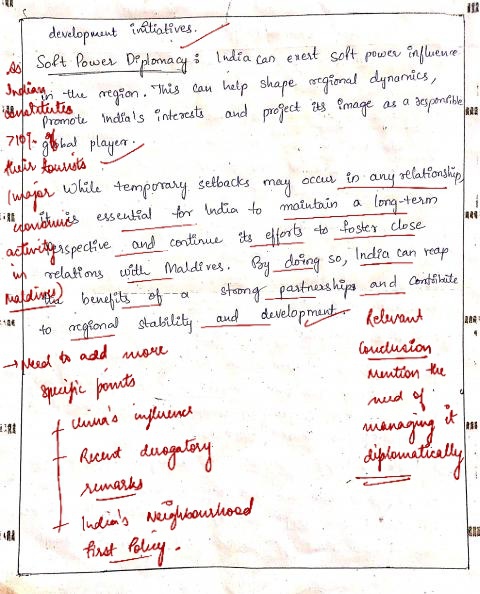 development initiatives.
Soft Power Diplomacy: India can exert soft power influence
in the region. This can help shape regional dynamics,
Promote India's interests and project its image as a responsible
global player.
While temporary setbacks may occur in any relationship,
it is essential for India to maintain a long-term
perspective and continue its efforts to foster close
relations with Maldives. By doing so, India can reap
the benefits of a strong partnerships and contribute
to regional stability and development.
As
Indian
constitutes
710% of
their tourists
(major
economic
activity
in
Maldives)
→ Need to add more
Specific points
China's influence
Recent derogatory
remarks
India's Neighbourhood
First Policy.
Relevant
Conclusion
Mention the
need of
managing it
diplomatically